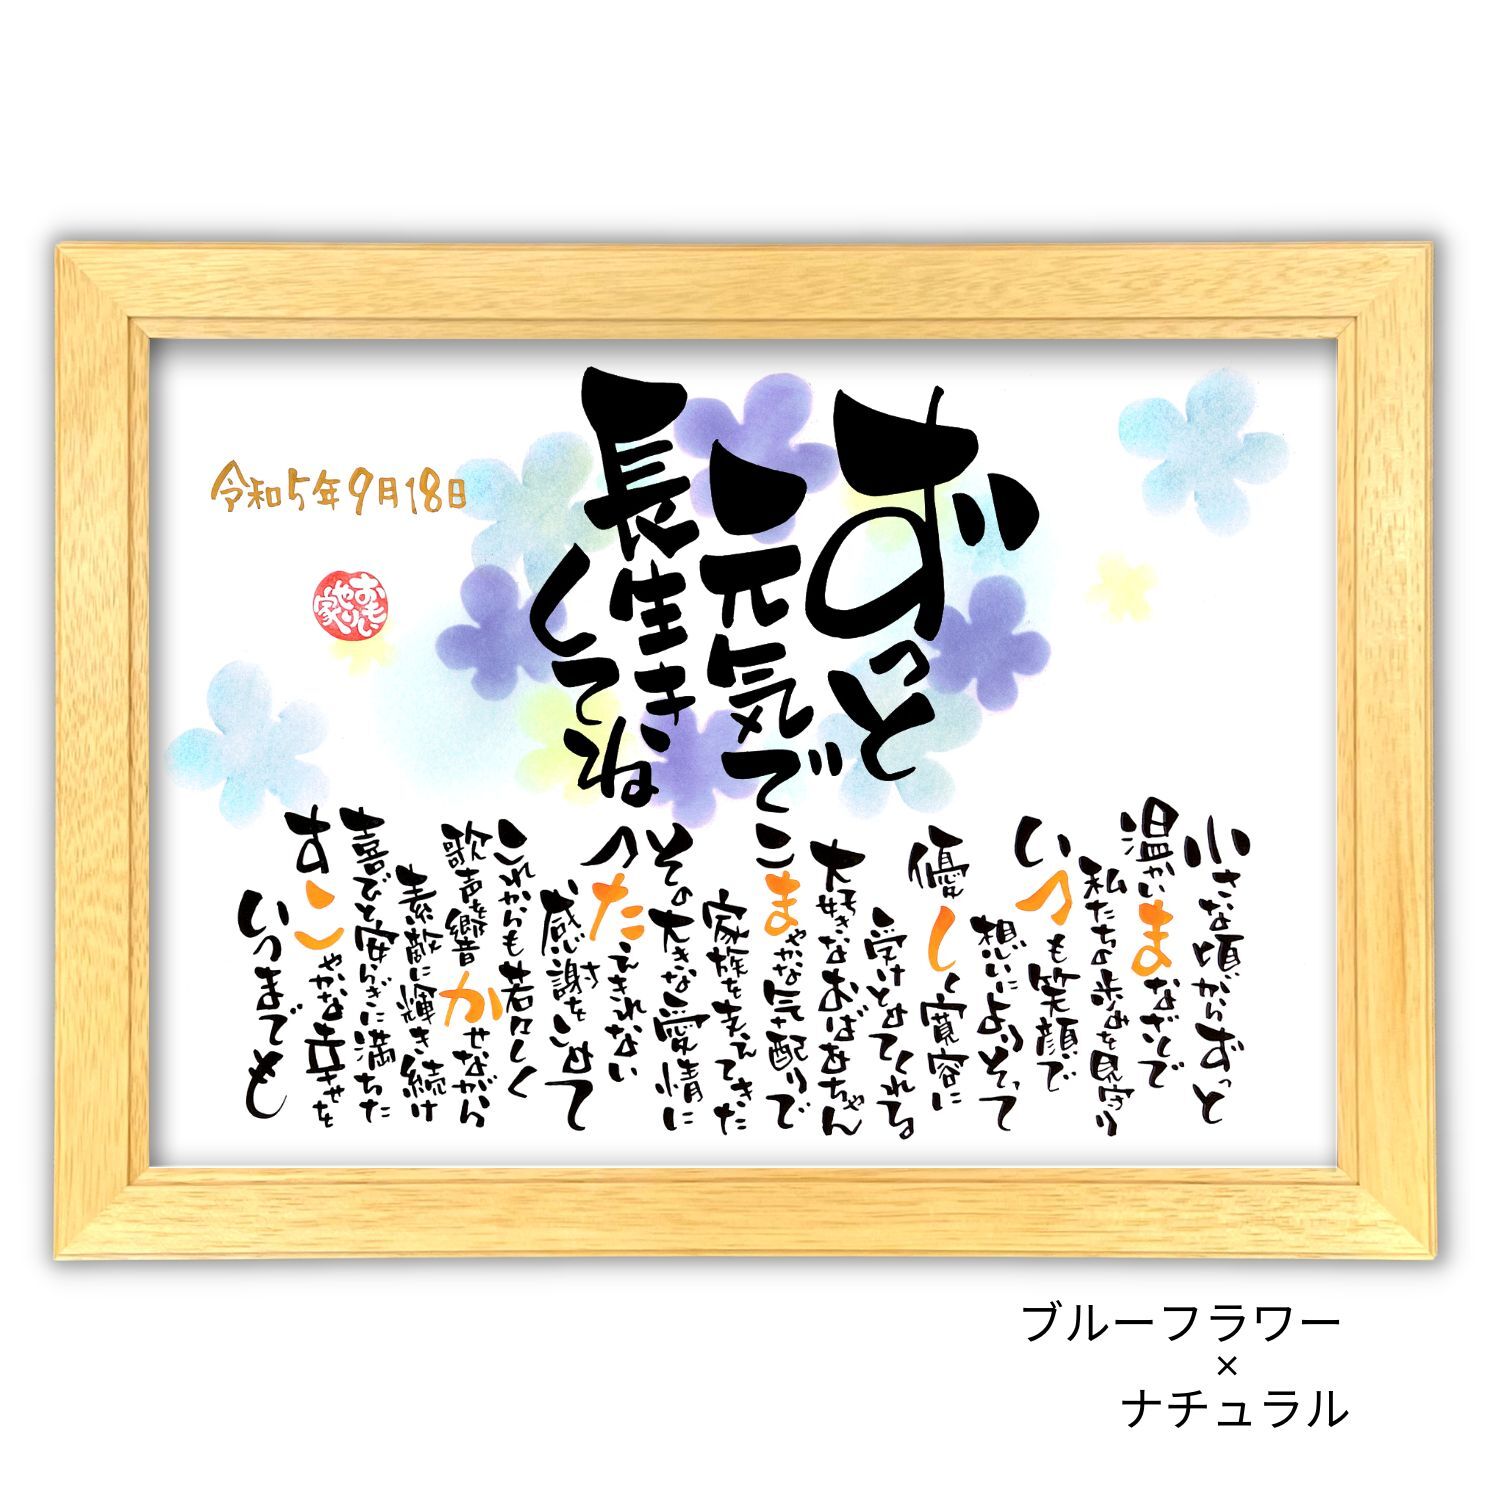 ずっと
元気で
長生き
してね
令和5年9月18日
おもいやり家
小さな頃からずっと
温かいまなざしで
私たちの歩みを見守り
いつも笑顔で
想いによりそって
優しく寛容に
受けとめてくれる
大好きなおばあちゃん
こまやかな気配りで
家族を支えてきた
その大きな愛情に
つたえきれない
感謝をこめて
これからも若々しく
歌声を響かせながら
素敵に輝き続け
喜びと安らぎに満ちた
すこやかな幸せを
いつまでも
ブルーフラワー
×
ナチュラル